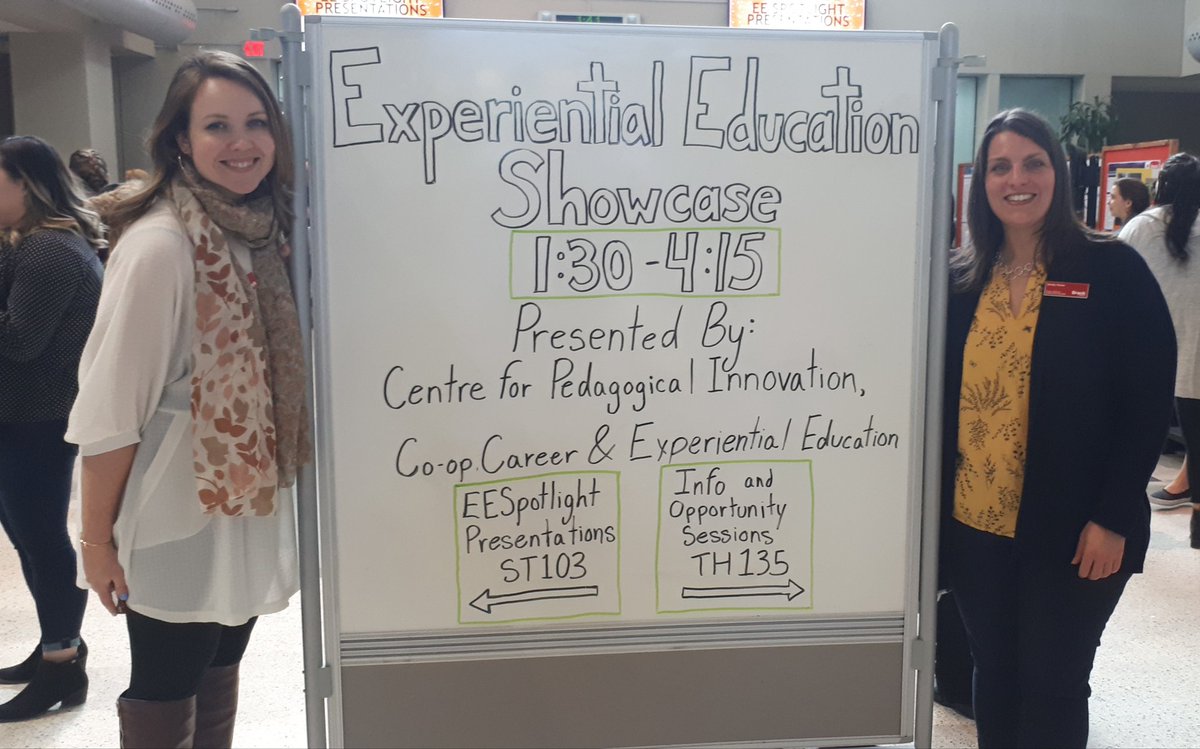 PRESENTATIONS
EE SPOTLIGHT
PRESENTATIONS
Experiential Education
Showcase
1:30 - 4:15
Presented By:
Centre for Pedagogical Innovation,
Co-op, Career & Experiential Education
EESpotlight
Presentations
ST103
Info and
Opportunity
Sessions
TH135
Brock